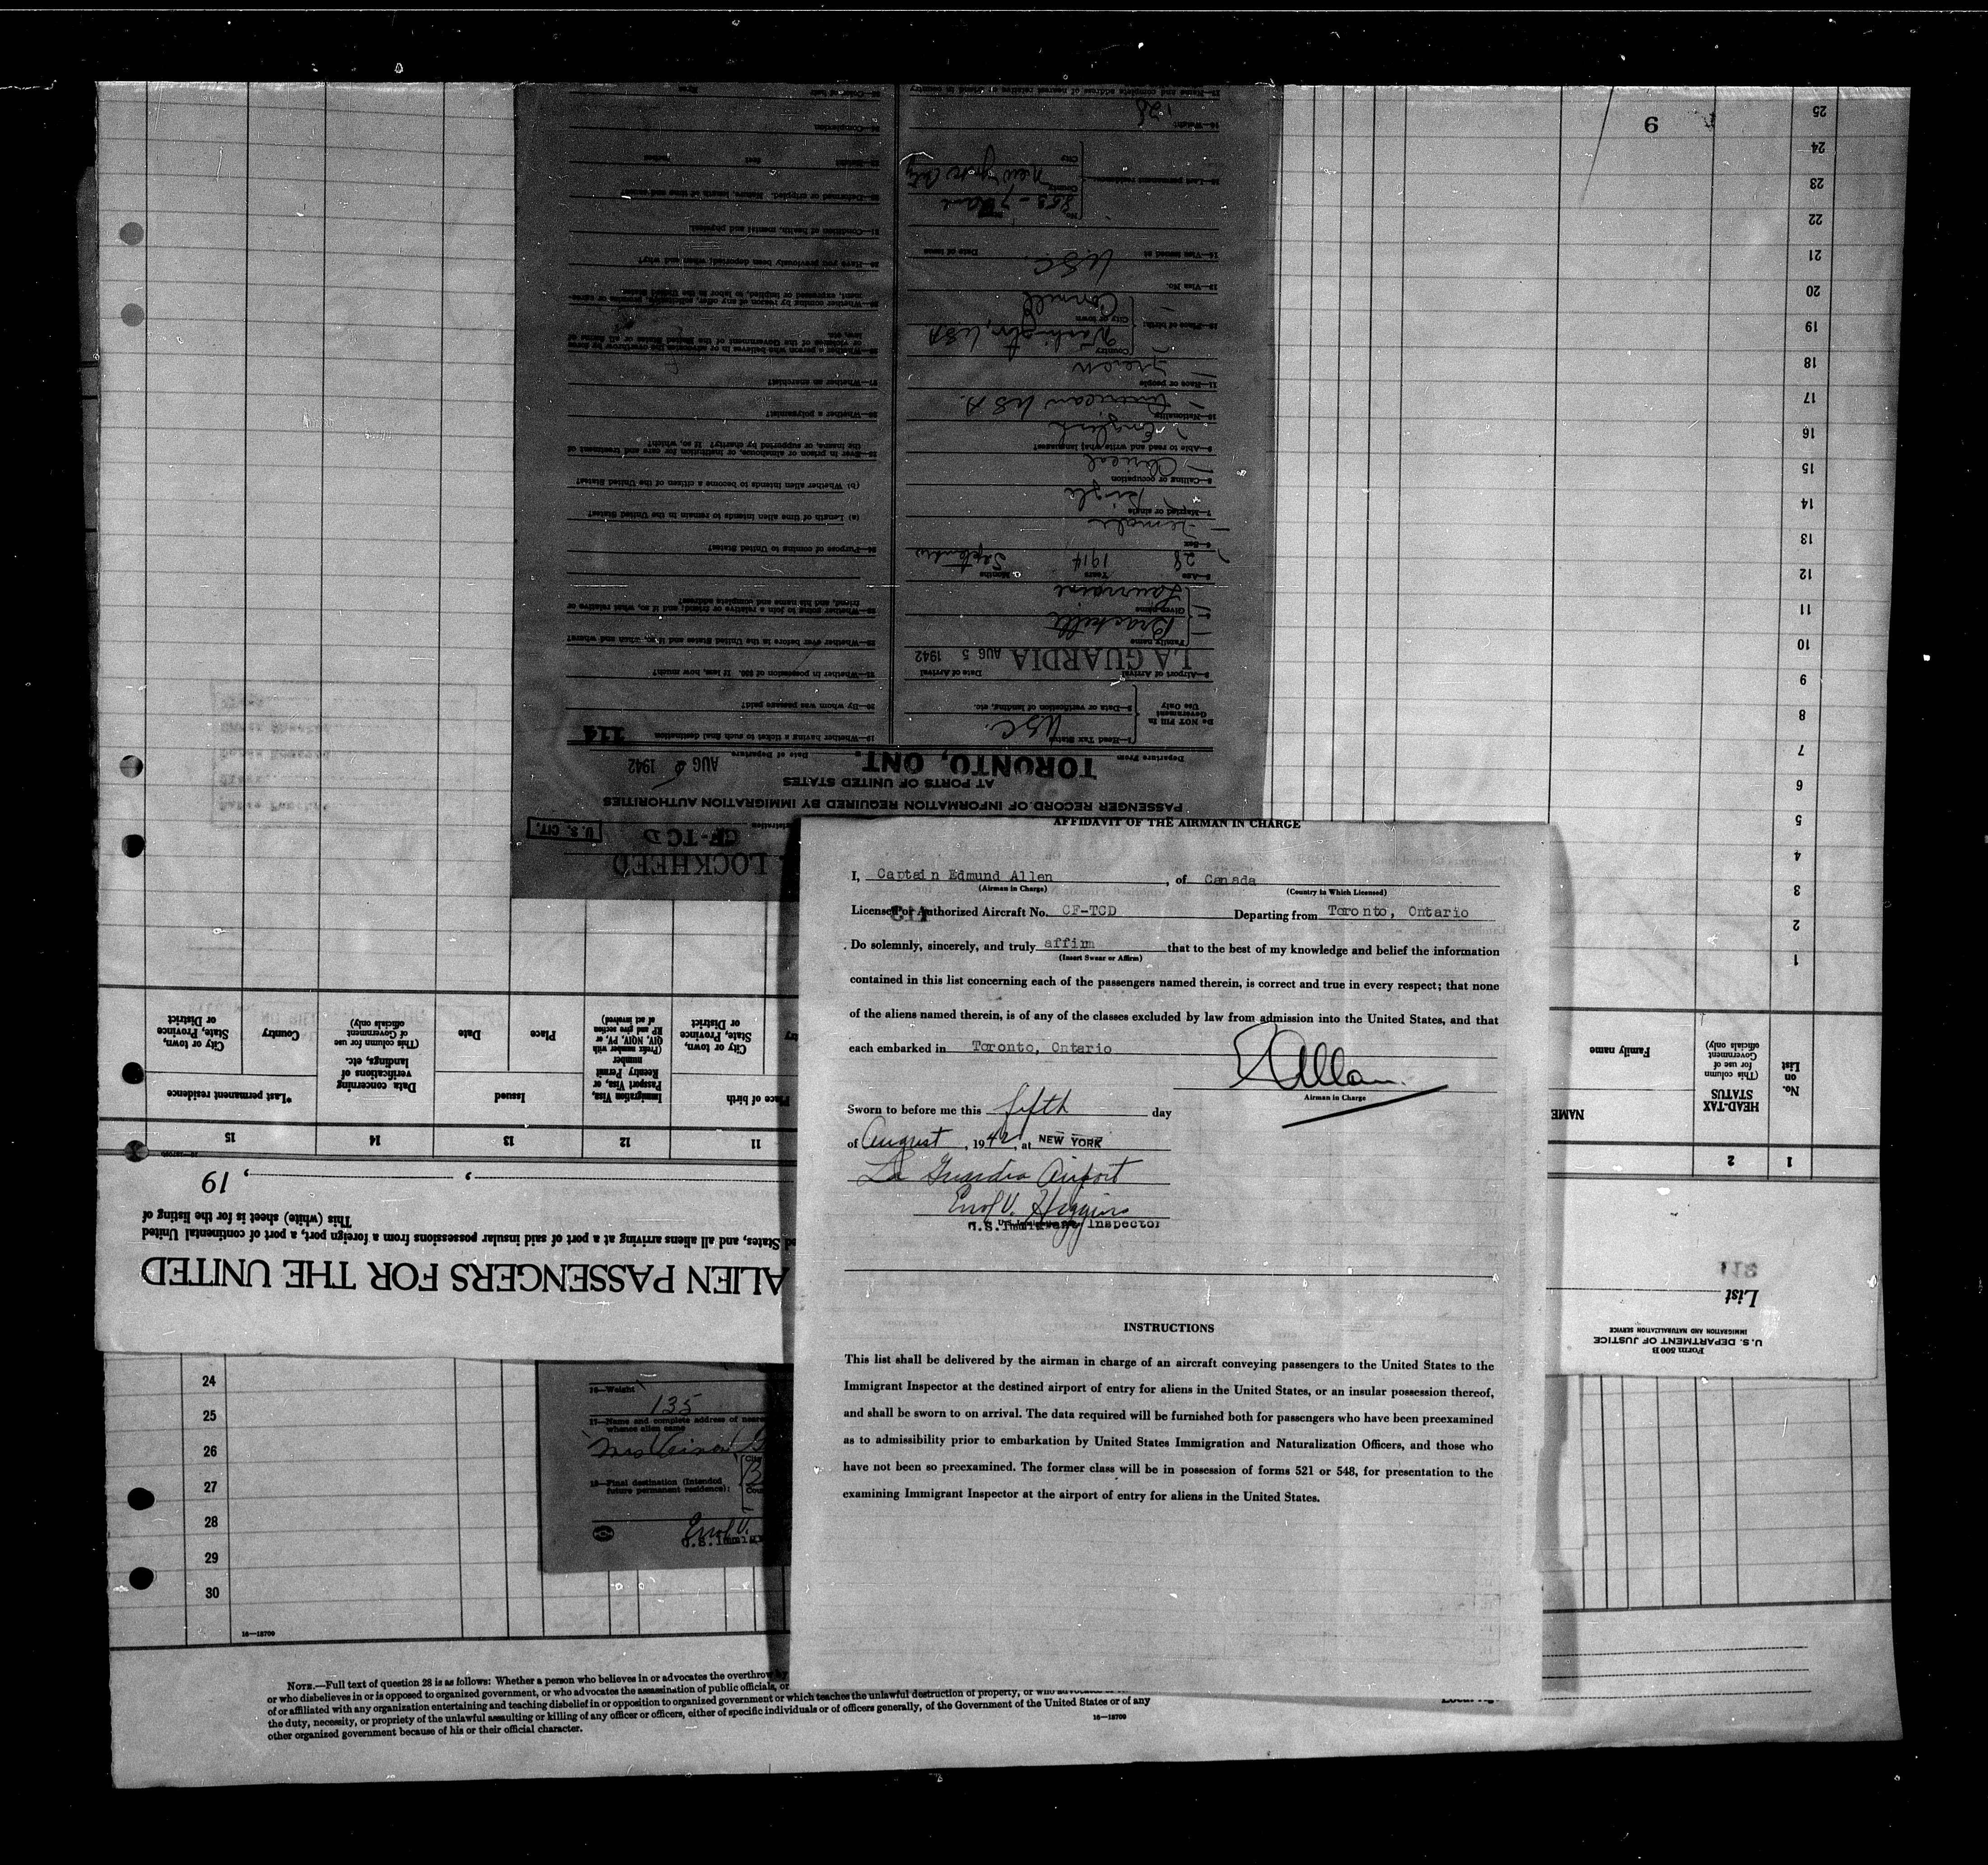 AFFIDAVIT OF THE AIRMAN IN CHARGE
I, Captain Edmund Allen, of Canada
(Airman in Charge) (Country in Which Licensed)
License or Authorized Aircraft No. CF-TCD Departing from Toronto, Ontario
Do solemnly, sincerely, and truly affirm that to the best of my knowledge and belief the information
(Insert Swear or Affirm)
contained in this list concerning each of the passengers named therein, is correct and true in every respect; that none
of the aliens named therein, is of any of the classes excluded by law from admission into the United States, and that
each embarked in Toronto, Ontario
E Allan
Airman in Charge
Sworn to before me this fifth day
of August, 1942, at NEW YORK
La Guardia Airport
Errol V. Higgins
U.S. Immigrant Inspector
INSTRUCTIONS
This list shall be delivered by the airman in charge of an aircraft conveying passengers to the United States to the
Immigrant Inspector at the destined airport of entry for aliens in the United States, or an insular possession thereof,
and shall be sworn to on arrival. The data required will be furnished both for passengers who have been preexamined
as to admissibility prior to embarkation by United States Immigration and Naturalization Officers, and those who
have not been so preexamined. The former class will be in possession of forms 521 or 548, for presentation to the
examining Immigrant Inspector at the airport of entry for aliens in the United States.
24
25
26
27
28
29
30
16—18709
16—Weight
135
17—Name and complete address of neares
whence alien came
18—Final destination (Intended
future permanent residence):
Errol V.
U.S. Immigr
NOTE.—Full text of question 28 is as follows: Whether a person who believes in or advocates the overthrow by
or who disbelieves in or is opposed to organized government, or who advocates the assassination of public officials, or
of or affiliated with any organization entertaining and teaching disbelief in or opposition to organized government or which teaches the unlawful destruction of property, or who
the duty, necessity, or propriety of the unlawful assaulting or killing of any officer or officers, either of specific individuals or of officers generally, of the Government of the United States or of any
other organized government because of his or their official character.
16—18709
Form 500 B
U. S. DEPARTMENT OF JUSTICE
IMMIGRATION AND NATURALIZATION SERVICE
List
ALIEN PASSENGERS FOR THE UNITED
ed States, and all aliens arriving at a port of said insular possessions from a foreign port, a port of continental United
This (white) sheet is for the listing of
, 19
1 2 11 12 13 14 15
No. on List
HEAD-TAX STATUS
(This column for use of Government officials only)
NAME
Family name
Place of birth
City or town, State, Province or District
Immigration Visa, Passport Visa, or Reentry Permit number
(Prefix number with QIV, NQIV, PV, or RP and give section of act involved)
Issued
Place
Date
Data concerning verifications of landings, etc.
(This column for use of Government officials only)
*Last permanent residence
Country
City or town, State, Province or District
1
2
3
4
5
6
7
8
9
10
11
12
13
14
15
16
17
18
19
20
21
22
23
24
25
6
LOCKHEED
CF-TCD
U. S. CIT.
PASSENGER RECORD OF INFORMATION REQUIRED BY IMMIGRATION AUTHORITIES
AT PORTS OF UNITED STATES
TORONTO, ONT. AUG 5 1942
Departure From Date of Departure
DO NOT Fill In
Government Use Only
1—Head Tax Status USC.
2—Data or verification of landing, etc.
3—Airport of Arrival Date of Arrival
LA GUARDIA AUG 5 1942
Family name
Given name
5—Age 28 Years 1914 Months September
6—Sex Female
7—Married or single Single
8—Calling or occupation Clerical
9—Able to read and write what languages? English
10—Nationality American USA.
11—Race or people French
12—Place of birth: Country Washington, USA
City or town
13—Visa No.
14—Visa issued at USC. Date of issue
15—Last permanent residence: No. 853-7 Ave
County
City New York City
16—Weight 128
17—Name and complete address of nearest relative or friend in country
19—Whether having a ticket to such final destination 114
20—By whom was passage paid?
21—Whether in possession of $50. If less, how much?
22—Whether ever before in the United States and if so, when and where?
23—Whether going to join a relative or friend; and if so, what relative or
friend, and his name and complete address?
24—Purpose of coming to United States?
(a) Length of time alien intends to remain in the United States?
(b) Whether alien intends to become a citizen of the United States?
25—Ever in prison or almshouse, or institution for care and treatment of
the insane, or supported by charity? If so, which?
26—Whether a polygamist?
27—Whether an anarchist?
28—Whether a person who believes in or advocates the overthrow by force
or violence of the Government of the United States or all forms of
law, etc.
29—Whether coming by reason of any offer, solicitation, promise or agree-
ment, expressed or implied, to labor in the United States
30—Have you previously been deported; when and why?
31—Condition of health, mental and physical
32—Deformed or crippled. Nature, length of time and cause?
33—Height feet inches
34—Complexion
35—Color of hair Eyes